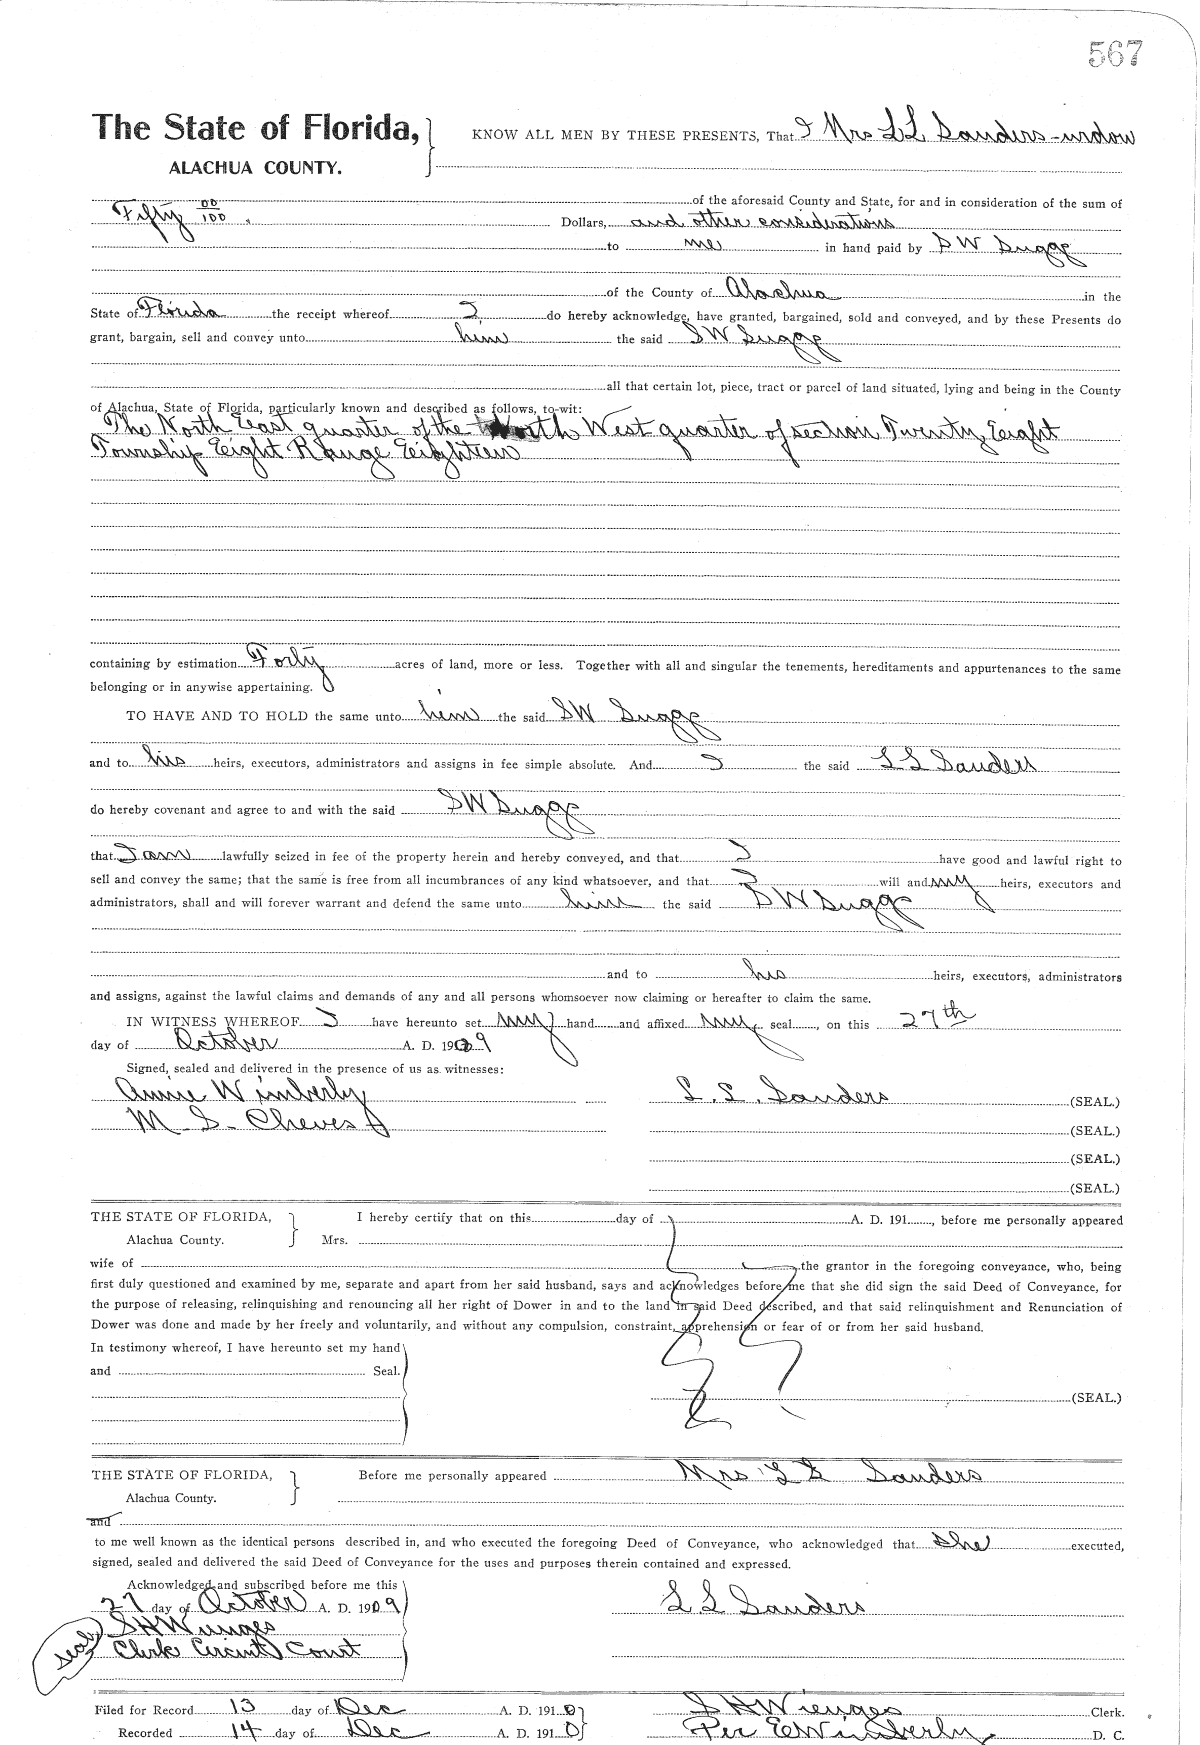 567
The State of Florida, KNOW ALL MEN BY THESE PRESENTS, That I Mrs L L Sanders - widow
ALACHUA COUNTY.
of the aforesaid County and State, for and in consideration of the sum of
Fifty 00/100 Dollars, and other considerations
to me in hand paid by S W Sugge
of the County of Alachua in the
State of Florida the receipt whereof I do hereby acknowledge, have granted, bargained, sold and conveyed, and by these Presents do
grant, bargain, sell and convey unto him the said S W Sugge
all that certain lot, piece, tract or parcel of land situated, lying and being in the County
of Alachua, State of Florida, particularly known and described as follows, to-wit:
The North East quarter of the North West quarter of section Twenty Eight
Township Eight Range Eighteen
containing by estimation Forty acres of land, more or less. Together with all and singular the tenements, hereditaments and appurtenances to the same
belonging or in anywise appertaining.
TO HAVE AND TO HOLD the same unto him the said S W Sugge
and to his heirs, executors, administrators and assigns in fee simple absolute. And I the said L L Sanders
do hereby covenant and agree to and with the said S W Sugge
that I am lawfully seized in fee of the property herein and hereby conveyed, and that I have good and lawful right to
sell and convey the same; that the same is free from all incumbrances of any kind whatsoever, and that I will and my heirs, executors and
administrators, shall and will forever warrant and defend the same unto him the said S W Sugge
and to his heirs, executors, administrators
and assigns, against the lawful claims and demands of any and all persons whomsoever now claiming or hereafter to claim the same.
IN WITNESS WHEREOF I have hereunto set my hand and affixed my seal, on this 27th
day of October A. D. 1909
Signed, sealed and delivered in the presence of us as witnesses:
Annie Wimberly L. L. Sanders (SEAL.)
M. S. Cheves (SEAL.)
(SEAL.)
(SEAL.)
THE STATE OF FLORIDA, I hereby certify that on this day of A. D. 191 , before me personally appeared
Alachua County. Mrs.
wife of the grantor in the foregoing conveyance, who, being
first duly questioned and examined by me, separate and apart from her said husband, says and acknowledges before me that she did sign the said Deed of Conveyance, for
the purpose of releasing, relinquishing and renouncing all her right of Dower in and to the land in said Deed described, and that said relinquishment and Renunciation of
Dower was done and made by her freely and voluntarily, and without any compulsion, constraint, apprehension or fear of or from her said husband.
In testimony whereof, I have hereunto set my hand
and Seal.
(SEAL.)
THE STATE OF FLORIDA, Before me personally appeared Mrs L L Sanders
Alachua County.
and
to me well known as the identical persons described in, and who executed the foregoing Deed of Conveyance, who acknowledged that she executed,
signed, sealed and delivered the said Deed of Conveyance for the uses and purposes therein contained and expressed.
Acknowledged and subscribed before me this
27 day of October A. D. 1909 L L Sanders
S H Wienges
seal Clerk Circuit Court
Filed for Record 13 day of Dec A. D. 1910 S H Wienges Clerk.
Recorded 14 day of Dec A. D. 1910 Per E Wimberly D. C.